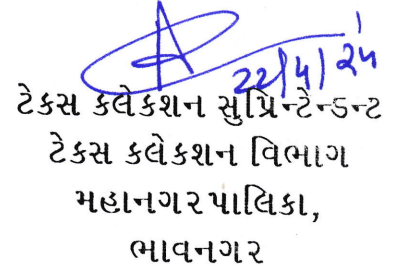 22/4/25
ટેકસ કલેકશન સુપ્રિન્ટેન્ડન્ટ
ટેકસ કલેકશન વિભાગ
મહાનગરપાલિકા,
ભાવનગર